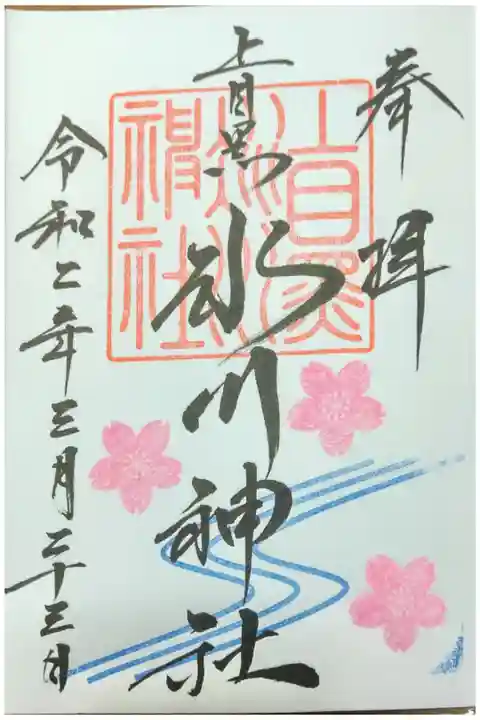 奉拝
上目黒氷川神社
令和二年三月二十三日
上目黒
氷川
神社